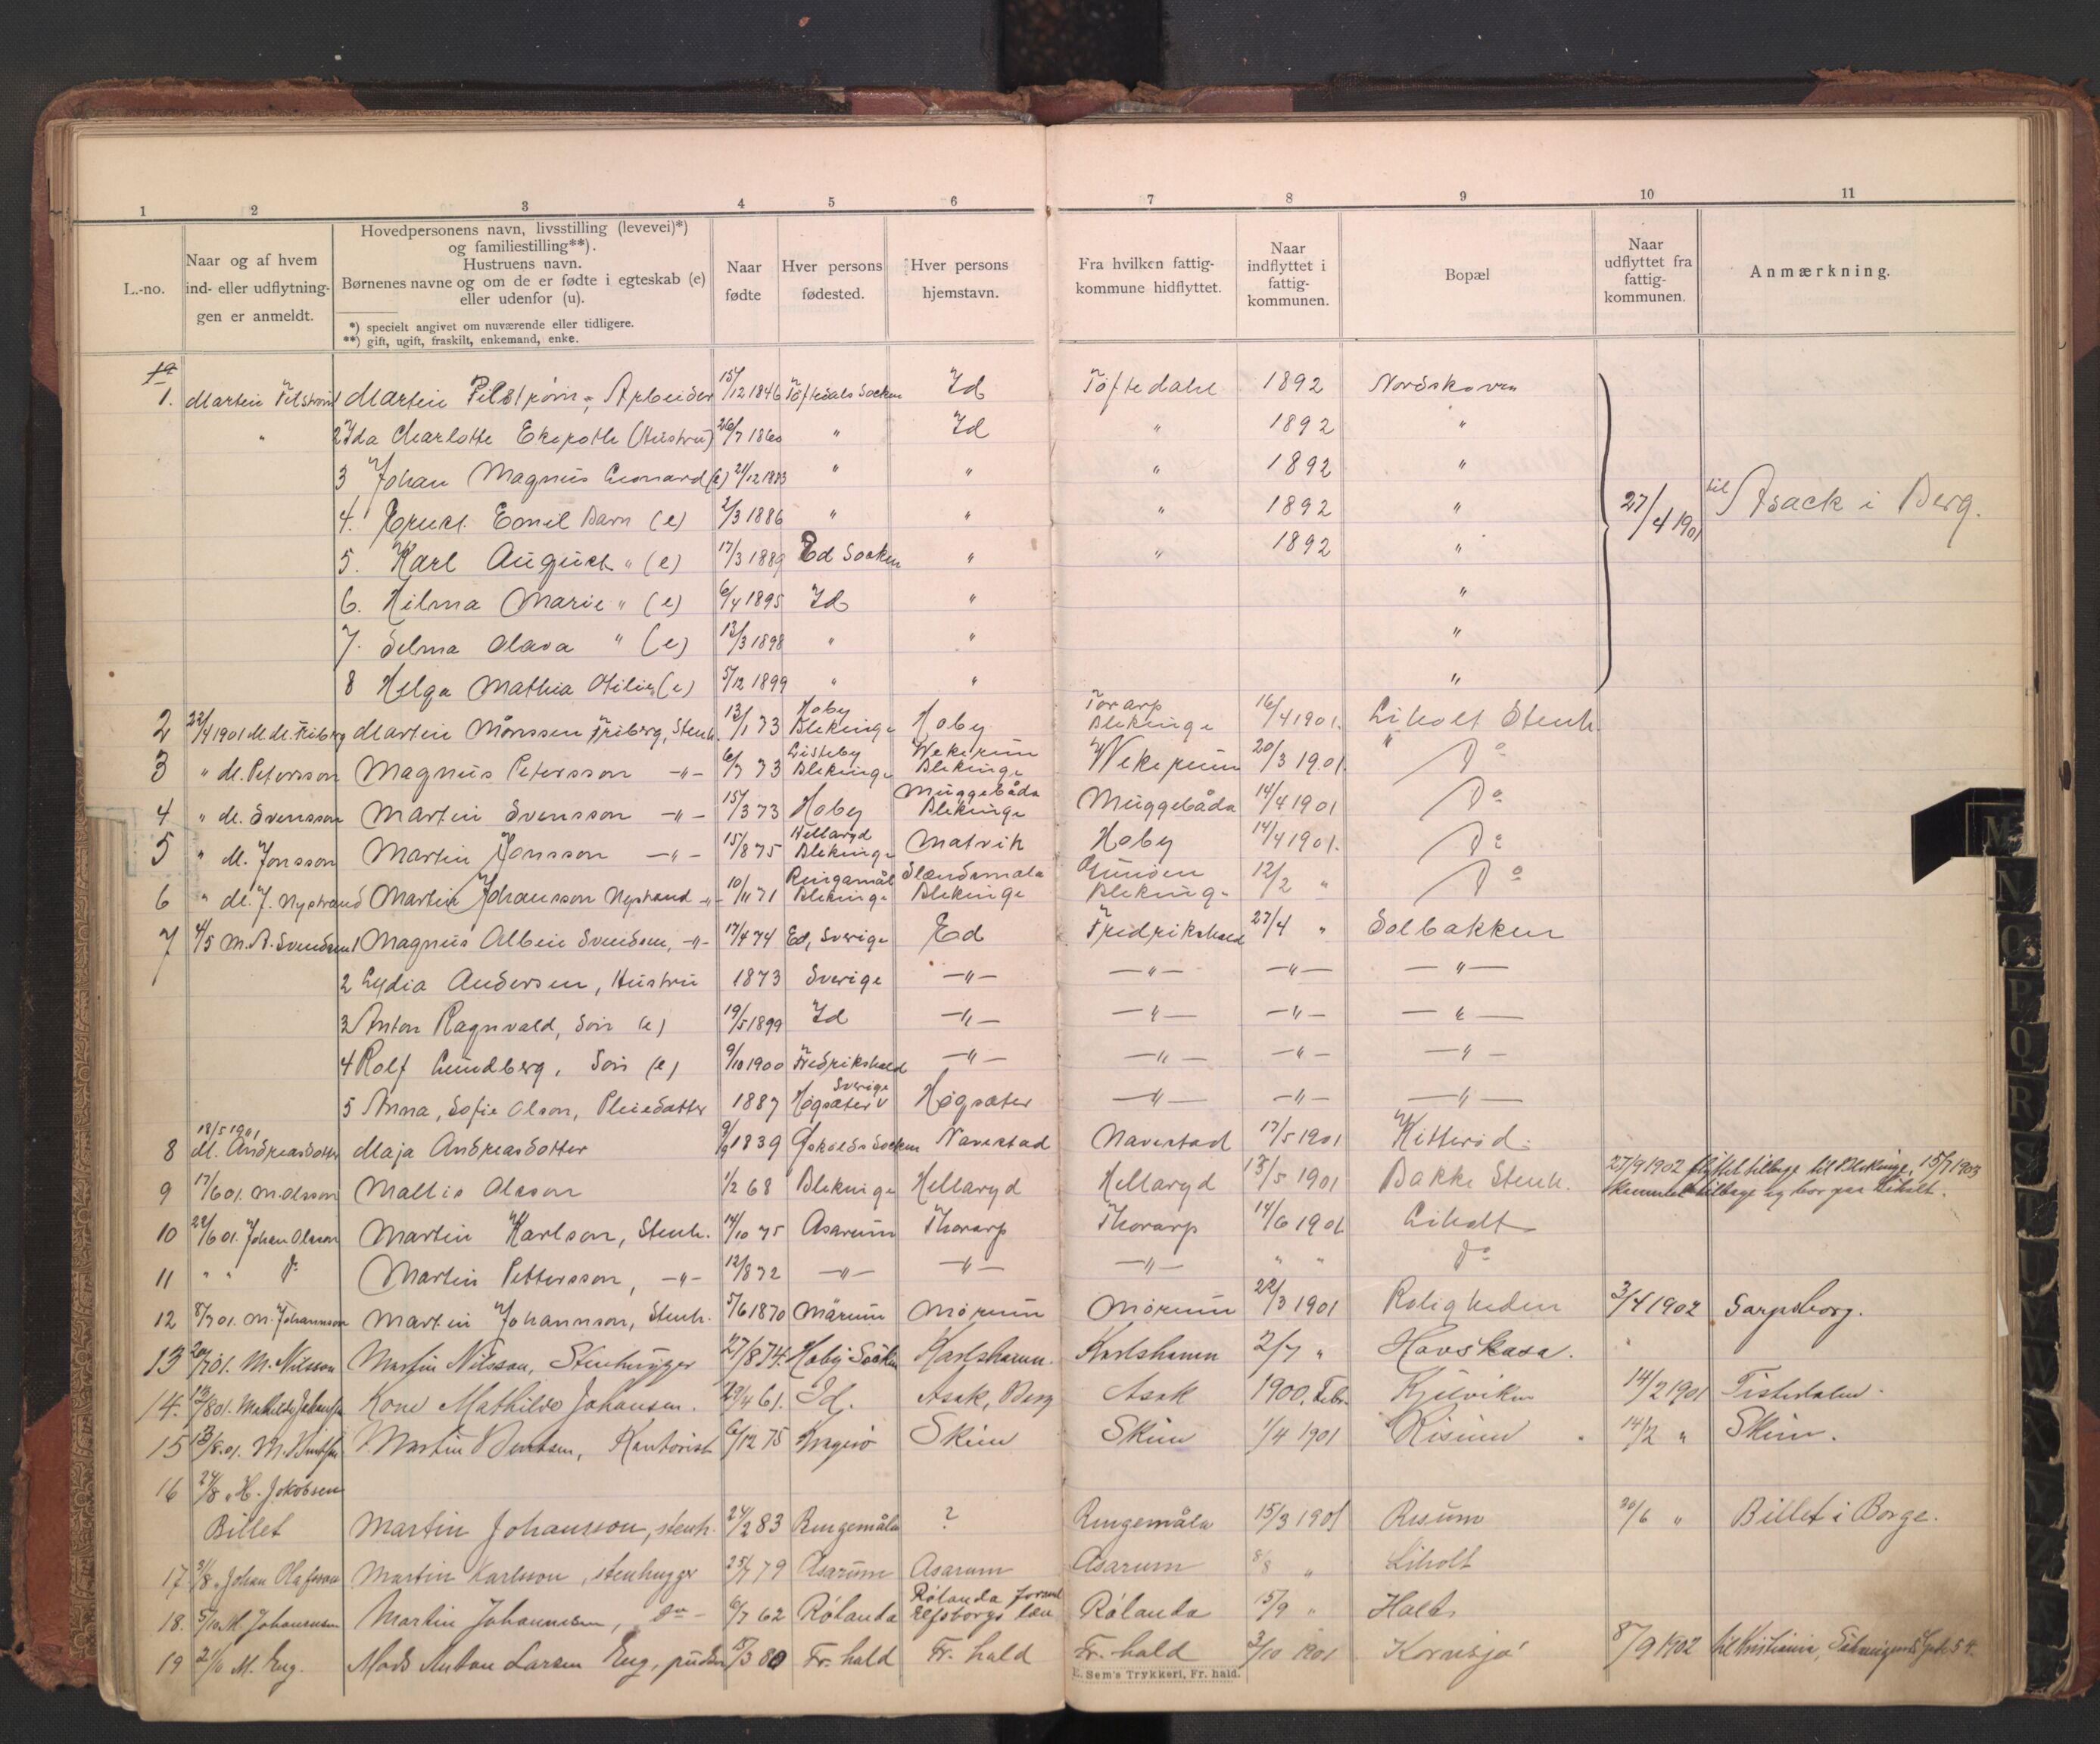 1 2 3 4 5 6 7 8 9 10 11
L.-no.
Naar og af hvem ind- eller udflytningen er anmeldt.
Hovedpersonens navn, livsstilling (levevei)*) og familiestilling**).
Hustruens navn.
Børnenes navne og om de er fødte i egteskab (e) eller udenfor (u).
*) specielt angivet om nuværende eller tidligere.
**) gift, ugift, fraskilt, enkemand, enke.
Naar fødte
Hver persons fødested.
Hver persons hjemstavn.
Fra hvilken fattigkommune hidflyttet.
Naar indflyttet i fattigkommunen.
Bopæl
Naar udflyttet fra fattigkommunen.
Anmærkning.
1. Martin Pilstrøm Martin Pilstrøm, Arbeider 15/12 1846 Töftedals Socken Id Töftedahl 1892 Nordskoven
" 2 Ida Charlotte Ekeroth (Hustru) 26/7 1860 " Id " 1892 "
3 Johan Magnus Leonard (e) 21/12 1883 " " " 1892 "
4. Ernst Emil Barn (e) 2/3 1886 " " " 1892 " 27/4 1901 til Asack i Berg.
5. Karl August " (e) 17/3 1889 Ed Socken " " 1892 "
6. Hilma Marie " (e) 6/4 1895 Id " "
7. Selma Olava " (e) 13/3 1898 " " "
8 Helga Mathia Otilie (e) 5/12 1899 " " "
2 22/4 1901 M. M. Friberg Martin Månsson Friberg, Stenh. 13/1 73 Hoby Blekinge Hoby Torarp Blekinge 16/4 1901. Liholt Stenh.
3 " M. Petersson Magnus Petersson -"- 6/7 73 Listeby Blekinge Wekerum Blekinge Wekerum 20/3 1901. " Do
4 " M. Svensson Martin Svensson -"- 15/3 73 Hoby Muggebåda Blekinge Muggebåda 14/4 1901 Do
5 " M. Jonsson Martin Jonsson -"- 15/8 75 Hellaryd Blekinge Matvik Hoby 14/4 1901. Do
6 " M. J. Nystrand Martin Johansson Nystrand -"- 10/11 71 Ringamål Blekinge Blekinge Blekinge 12/2 " Do
7 4/5 M. A. Svendsen 1 Magnus Albin Svendsen, -"- 17/4 74 Ed, Sverige Ed Fredrikshald 27/4 " Solbakken
2 Lydia Andersen, Hustru 1873 Sverige -"- -"- -"- -"-
3 Anton Ragnvald, Søn (e) 19/5 1899 Id -"- -"- -"- -"-
4 Rolf Lundberg, Søn (e) 9/10 1900 Fredrikshald -"- -"- -"- -"-
5 Anna, Sofie Olson, Pleiedatter 1887 Høgsæter Sverige Høgsæter -"- -"- -"-
8 18/5 1901 M. Andreasdotter Maja Andreasdotter 9/9 1839 Navestad Navestad 17/5 1901 Kitterød
9 17/6 01. M. Olsson Mattis Olsson 1/2 68 Blekinge Hellaryd Hellaryd 13/5 1901 Bakke Stenh. 27/9 1902 flyttet tilbage til Blekinge, 15/7 1903 kommet tilbage og bor paa Liholt.
10 22/6 01. Johan Olsson Martin Karlson, Stenh. 14/10 75 Asarum Thorarp Thorarp 14/6 1901 Liholt
11 " " Do Martin Pettersson, -"- 12/8 72 -"- -"- -"- " " Do
12 8/7 01. M. Johannson Martin Johannson, Stenh. 5/6 1870 Mārum Mōrum Mōrum 22/3 1901 Roligheden 3/4 1902 Sarpsborg.
13 20/7 01. M. Nilsson Martin Nilsson, Stenhugger 27/8 74. Hoby Socken Karlshamn. Karlshamn 2/7 " Havskasa. "
14. 13/8 01. Mathilde Johansen Kone Mathilde Johansen. 29/4 61. Id. Asak, Berg Asak 1900, Febr. Kjølviken 14/2 1901 Tistedalen.
15 13/8.01. M. Berntsen Martin Berntsen, Kontorist 6/12 75 Kragerø Skien Skien 1/4 1901 Risum 14/2 " Skien.
16 24/8 " H. Jakobsen
Billet Martin Johansson, stenh. 24/2 83 Ringemåla ? Ringemåla 15/3 1901 Risum 20/6 " Billet i Borge.
17 31/8 " Johan Olafsson Martin Karlsson, stenhugger 25/7 79 Asarum Asarum Asarum 8/8 " Liholt
18. 5/10 M. Johannesen Martin Johannesen, do - 6/7 62 Rölanda Rölanda Elfsborgs län Rölanda 15/9 "
19 2/10 M. Eng. Mads Anton Larsen Eng, 5/3 80 Fr. hald Fr. hald Fr. hald 3/10 1901 Kornsjø 8/9 1902 til Kristiania,
E. Sem's Trykkeri, Fr. hald.
M
N
O
P
Q
R
S
T
U
V
X
Y
Z